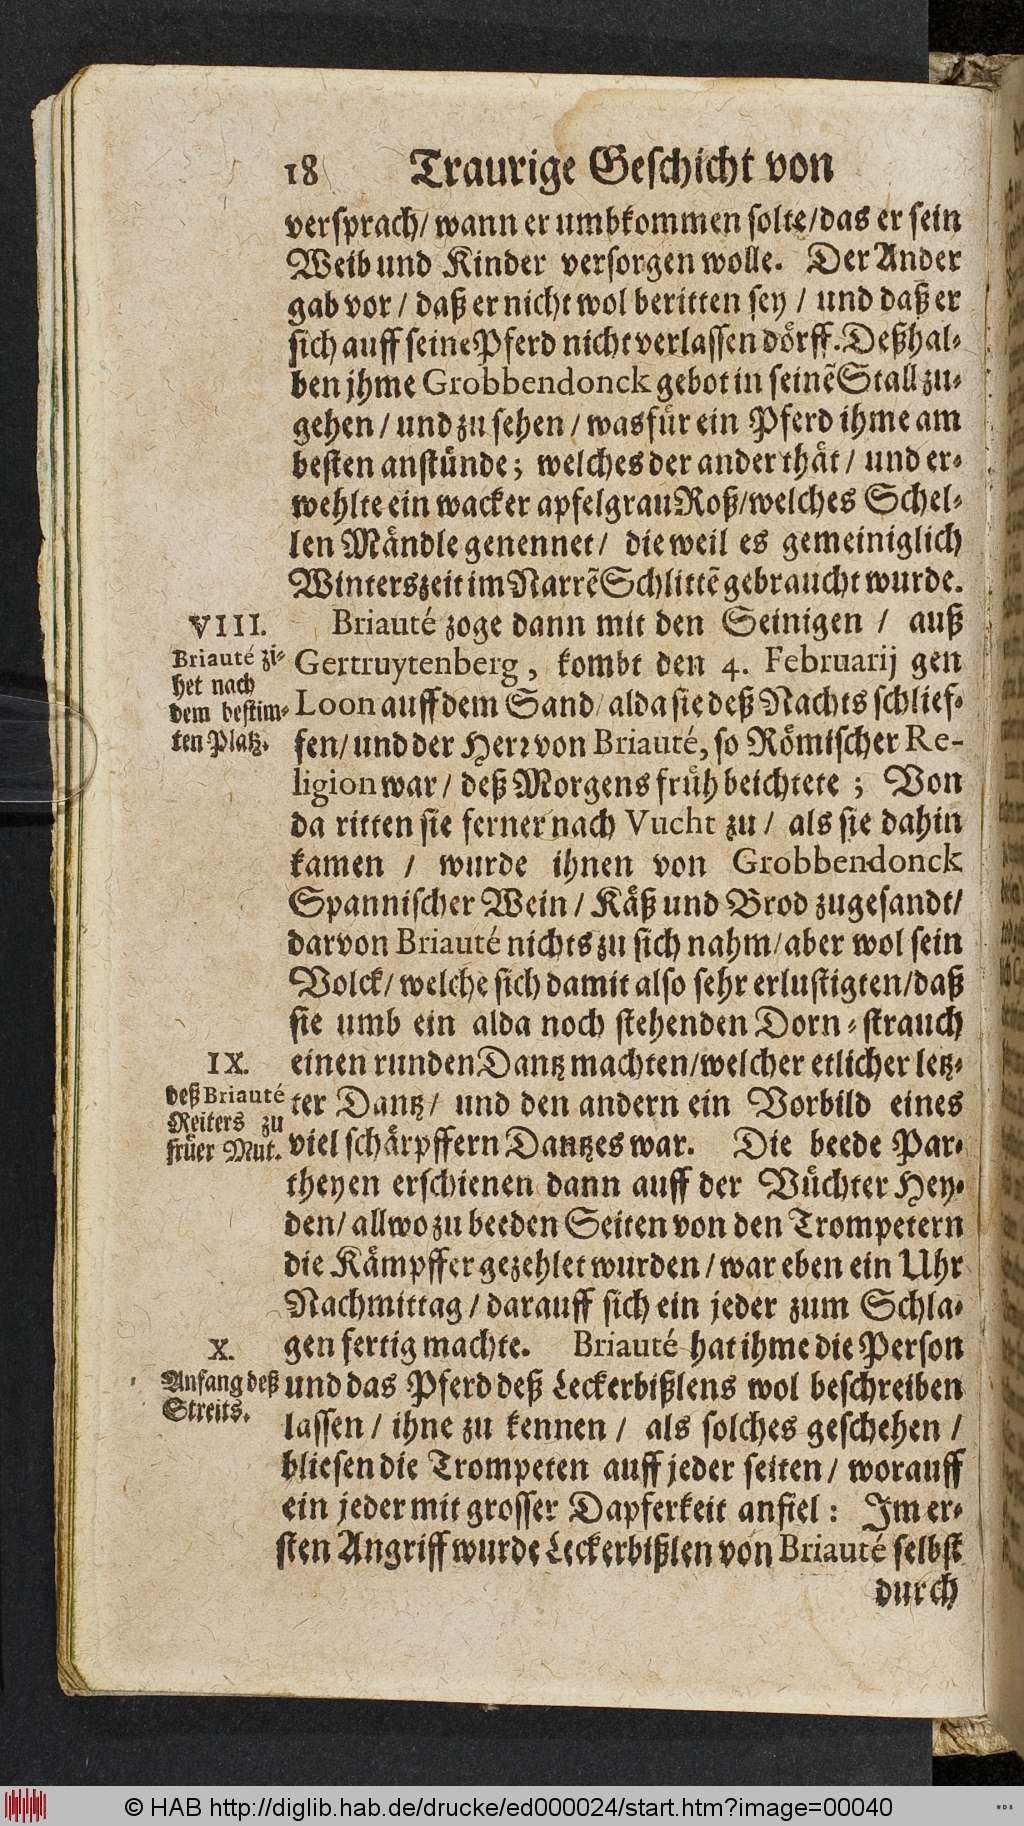 18 Traurige Geschicht von
versprach/ wann er umbkommen solte/ das er sein
Weib und Kinder versorgen wolle. Der Ander
gab vor / daß er nicht wol beritten sey / und daß er
sich auff seine Pferd nicht verlassen dörff. Deßhal-
ben jhme Grobbendonck gebot in seinē Stall zu-
gehen / und zu sehen / was für ein Pferd ihme am
besten anstünde; welches der ander thät / und er-
wehlte ein wacker apfelgrau Roß/ welches Schel-
len Mändle genennet/ die weil es gemeiniglich
Winterszeit im Narrē Schlittē gebraucht wurde.
VIII.
Briauté zi-
het nach
dem bestim-
ten Platz.
Briauté zoge dann mit den Seinigen / auß
Gertruytenberg, kombt den 4. Februarij gen
Loon auff dem Sand/ alda sie deß Nachts schlief-
fen/ und der Herr von Briauté, so Römischer Re-
ligion war / deß Morgens früh beichtete; Von
da ritten sie ferner nach Vucht zu / als sie dahin
kamen / wurde ihnen von Grobbendonck
Spannischer Wein / Käß und Brod zugesandt/
darvon Briauté nichts zu sich nahm/ aber wol sein
Volck/ welche sich damit also sehr erlustigten/ daß
sie umb ein alda noch stehenden Dorn-strauch
IX.
deß Briauté
Reiters zu
früer Mut.
einen runden Dantz machten/ welcher etlicher letz-
ter Dantz/ und den andern ein Vorbild eines
viel schärpffern Dantzes war. Die beede Par-
theyen erschienen dann auff der Vüchter Hey-
den/ allwo zu beeden Seiten von den Trompetern
die Kämpffer gezehlet wurden / war eben ein Uhr
Nachmittag / darauff sich ein jeder zum Schla-
X.
Anfang deß
Streits.
gen fertig machte. Briauté hat ihme die Person
und das Pferd deß Leckerbißlens wol beschreiben
lassen / ihne zu kennen / als solches geschehen /
bliesen die Trompeten auff jeder seiten / worauff
ein jeder mit grosser Dapferkeit anfiel: Im er-
sten Angriff wurde Leckerbißlen von Briauté selbst
durch
© HAB http://diglib.hab.de/drucke/ed000024/start.htm?image=00040